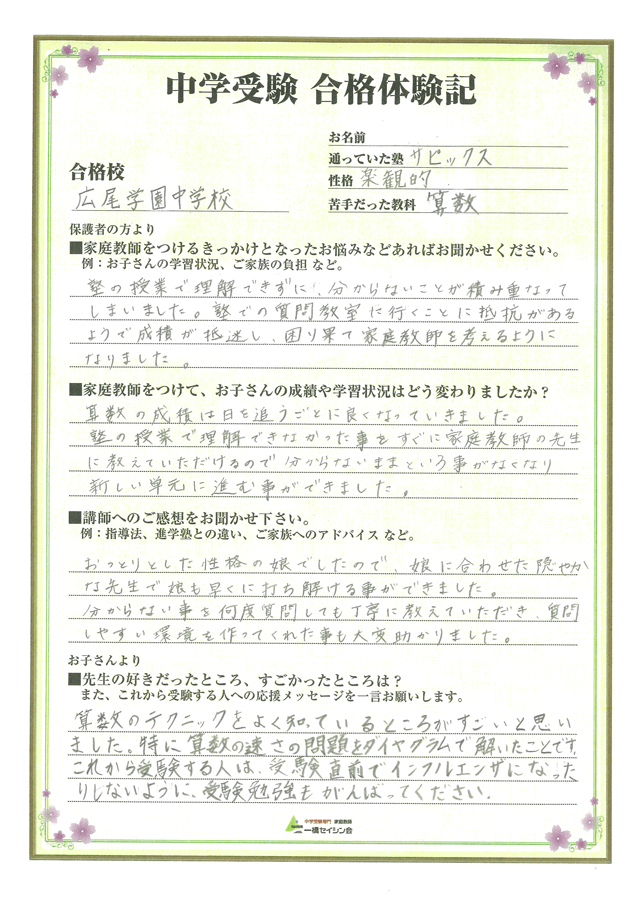 中学受験 合格体験記
お名前
通っていた塾 サピックス
合格校
性格 楽観的
広尾学園中学校
苦手だった教科 算数
保護者の方より
■家庭教師をつけるきっかけとなったお悩みなどあればお聞かせください。
例：お子さんの学習状況、ご家族の負担 など。
塾の授業で理解できずに、分からないことが積み重なって
しまいました。塾での質問教室に行くことに抵抗がある
ようで成績が低迷し、困り果て家庭教師を考えるように
なりました。
■家庭教師をつけて、お子さんの成績や学習状況はどう変わりましたか？
算数の成績は日を追うごとに良くなっていきました。
塾の授業で理解できなかった事をすぐに家庭教師の先生
に教えていただけるので分からないままという事がなくなり
新しい単元に進む事ができました。
■講師へのご感想をお聞かせ下さい。
例：指導法、進学塾との違い、ご家族へのアドバイス など。
おっとりとした性格の娘でしたので、娘に合わせた穏やか
な先生で娘も早くに打ち解ける事ができました。
分からない事を何度質問しても丁寧に教えていただき、質問
しやすい環境を作ってくれた事も大変助かりました。
お子さんより
■先生の好きだったところ、すごかったところは？
また、これから受験する人への応援メッセージを一言お願いします。
算数のテクニックをよく知っているところがすごいと思い
ました。特に算数の速さの問題をダイヤグラムで解いたことです。
これから受験する人は、受験直前でインフルエンザになった
りしないように、受験勉強もがんばってください。
中学受験専門 家庭教師
一橋セイシン会